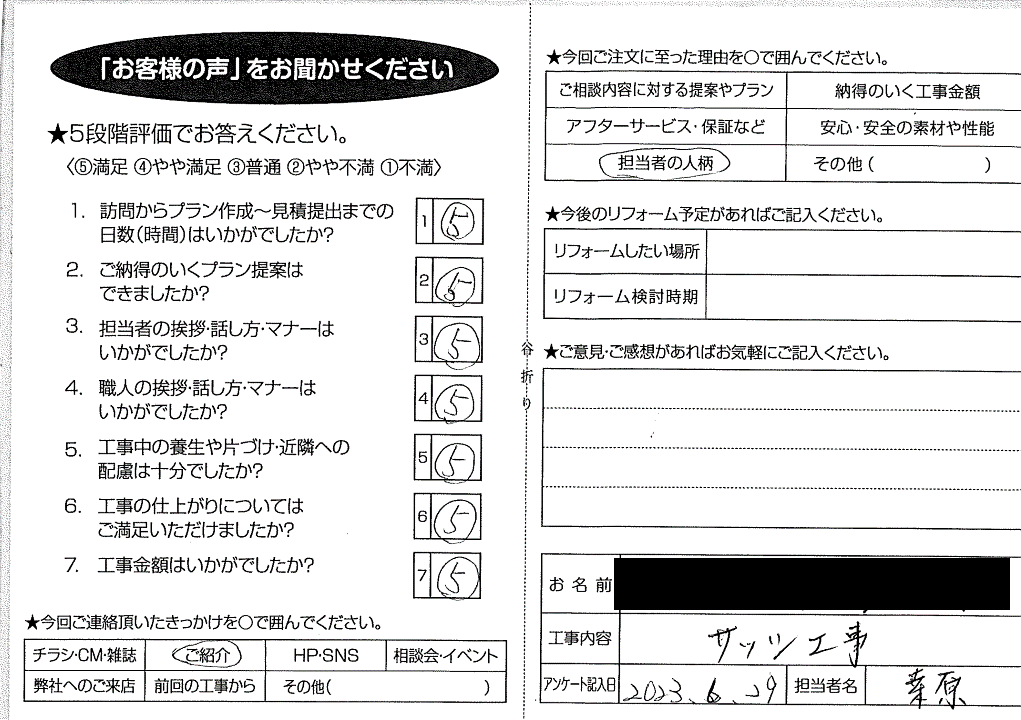 「お客様の声」をお聞かせください
★5段階評価でお答えください。
〈⑤満足 ④やや満足 ③普通 ②やや不満 ①不満〉
1. 訪問からプラン作成〜見積提出までの
日数(時間)はいかがでしたか?
1 ⑤
2. ご納得のいくプラン提案は
できましたか?
2 ⑤
3. 担当者の挨拶・話し方・マナーは
いかがでしたか?
3 ⑤
4. 職人の挨拶・話し方・マナーは
いかがでしたか?
4 ⑤
5. 工事中の養生や片づけ・近隣への
配慮は十分でしたか?
5 ⑤
6. 工事の仕上がりについては
ご満足いただけましたか?
6 ⑤
7. 工事金額はいかがでしたか?
7 ⑤
★今回ご連絡頂いたきっかけを○で囲んでください。
チラシ・CM・雑誌 ご紹介 HP・SNS 相談会・イベント
弊社へのご来店 前回の工事から その他( )
谷折り
★今回ご注文に至った理由を○で囲んでください。
ご相談内容に対する提案やプラン 納得のいく工事金額
アフターサービス・保証など 安心・安全の素材や性能
担当者の人柄 その他( )
★今後のリフォーム予定があればご記入ください。
リフォームしたい場所
リフォーム検討時期
★ご意見・ご感想があればお気軽にご記入ください。
お名前
工事内容 サッシ工事
アンケート記入日 2023.6.29 担当者名 原